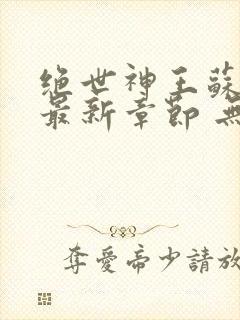 絕世神王蘇
最新章節 無
奪愛帝少請放